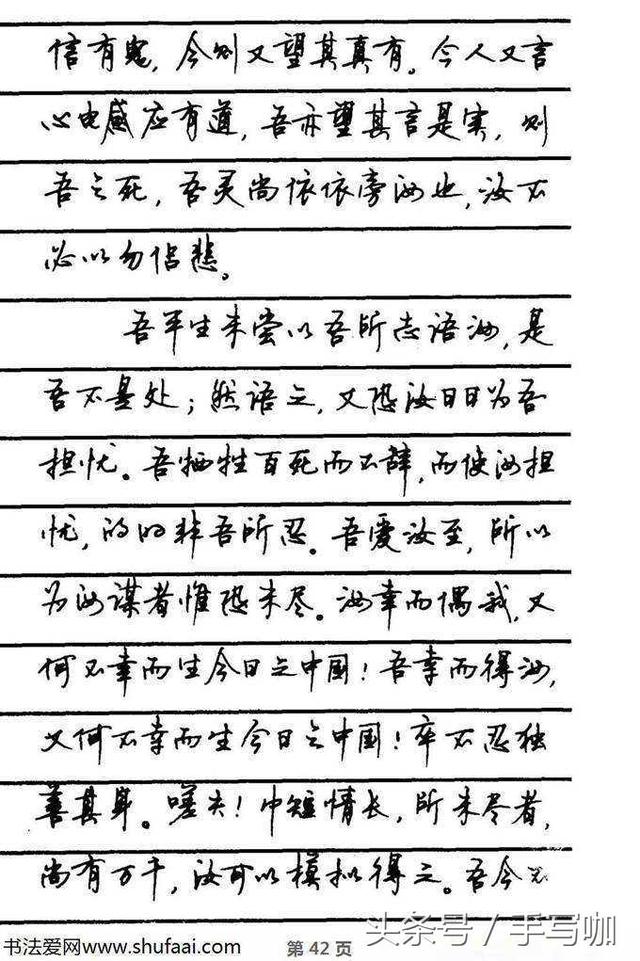 信有鬼，今则又望其真有。今人又言
心电感应有道，吾亦望其言是实，则
吾之死，吾灵尚依依旁汝也，汝不
必以勿侣悲。
吾平生未尝以吾所志语汝，是
吾不是处；然语之，又恐汝日日为吾
担忧。吾牺牲百死而不辞，而使汝担
忧，的的非吾所忍。吾爱汝至，所以
为汝谋者惟恐未尽。汝幸而偶我，又
何不幸而生今日之中国！吾幸而得汝，
又何不幸而生今日之中国！卒不忍独
善其身。嗟夫！巾短情长，所未尽者，
尚有万千，汝可以模拟得之。吾今不
书法爱网www.shufaai.com
第 42 页
头条号 / 手写咖